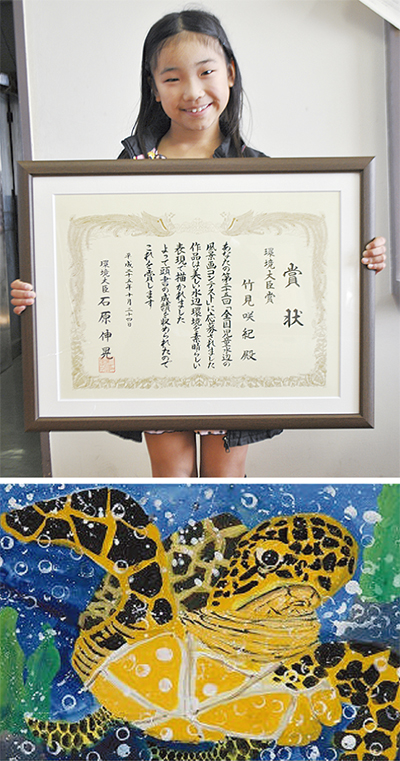 賞状
環境大臣賞
竹見咲紀 殿
あなたの第二十三回「全国児童水辺の
風景画コンテスト」に応募されました
作品は美しい水辺環境を素晴らしい
表現で描かれました
よって頭書の成績を収められたので
これを賞します
平成二十五年十月二十四日
環境大臣 石原伸晃